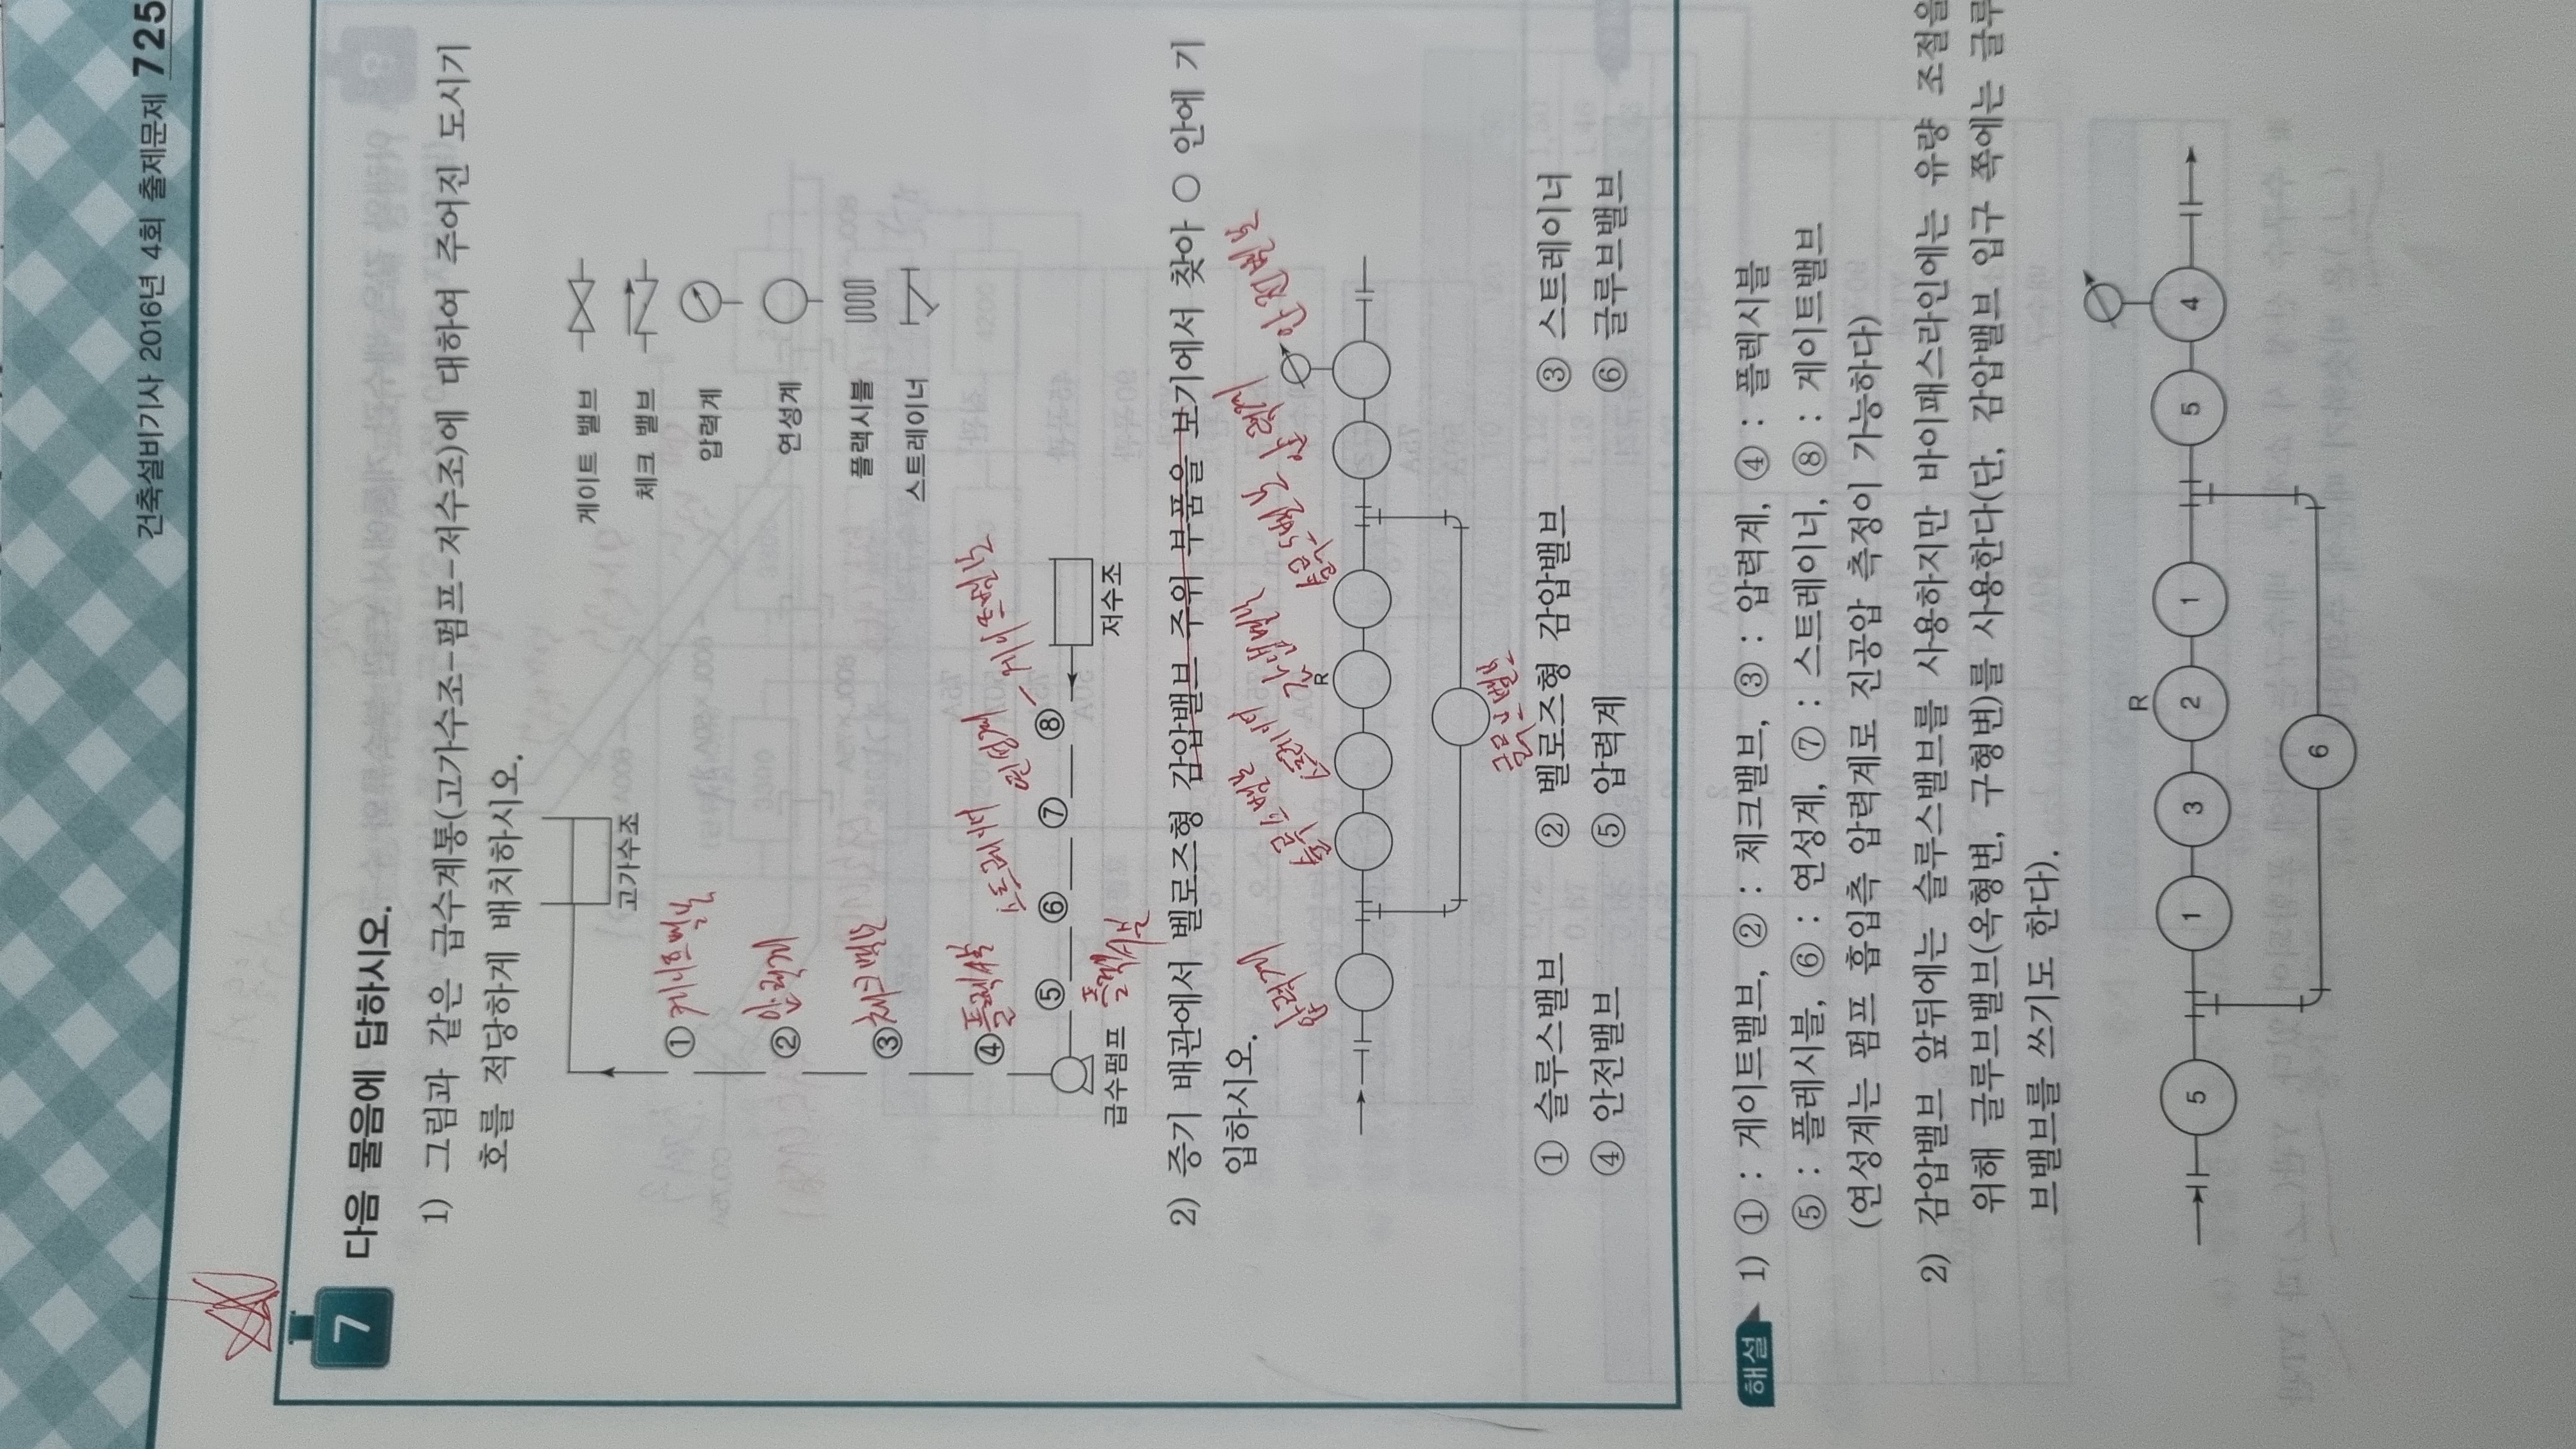 건축설비기사 2016년 4회 출제문제 725
7 다음 물음에 답하시오.
1) 그림과 같은 급수계통(고가수조-펌프-저수조)에 대하여 주어진 도시기
호를 적당하게 배치하시오.
고가수조
게이트 밸브
체크 밸브
압력계
연성계
플랙시블
스트레이너
① 게이트밸브
② 압력계
③ 체크밸브
④
스트레이너
연성계
게이트밸브
⑤ ⑥ ⑦ ⑧
급수펌프
저수조
2) 증기 배관에서 벨로즈형 감압밸브 주위 부품을 보기에서 찾아 ○ 안에 기
입하시오.
압력계
안전밸브
R
글로브밸브
① 슬루스밸브 ② 벨로즈형 감압밸브 ③ 스트레이너
④ 안전밸브 ⑤ 압력계 ⑥ 글루브밸브
해설 1) ① : 게이트밸브, ② : 체크밸브, ③ : 압력계, ④ : 플렉시블
⑤ : 플래시블, ⑥ : 연성계, ⑦ : 스트레이너, ⑧ : 게이트밸브
(연성계는 펌프 흡입측 압력계로 진공압 측정이 가능하다)
2) 감압밸브 앞뒤에는 슬루스밸브를 사용하지만 바이패스라인에는 유량 조절을
위해 글루브밸브(옥형변, 구형변)를 사용한다(단, 감압밸브 입구 쪽에는 글루
브밸브를 쓰기도 한다).
R
5 1 3 2 1 5 4
6